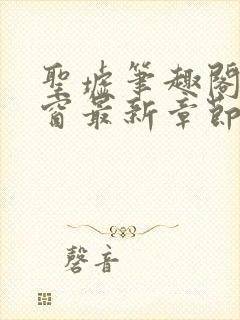 聖墟筆趣閣
窗最新章節
磬音